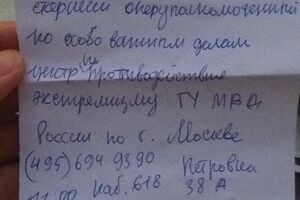 старший оперуполномоченный
по особо важным делам
центр ПРотиводействие
экстремизму ГУ МВД
России по г. Москве
(495) 694 93 90 Петровка
каб. 618 38 А